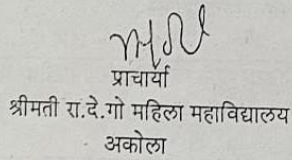 प्राचार्या
श्रीमती रा.दे.गो महिला महाविद्यालय
अकोला